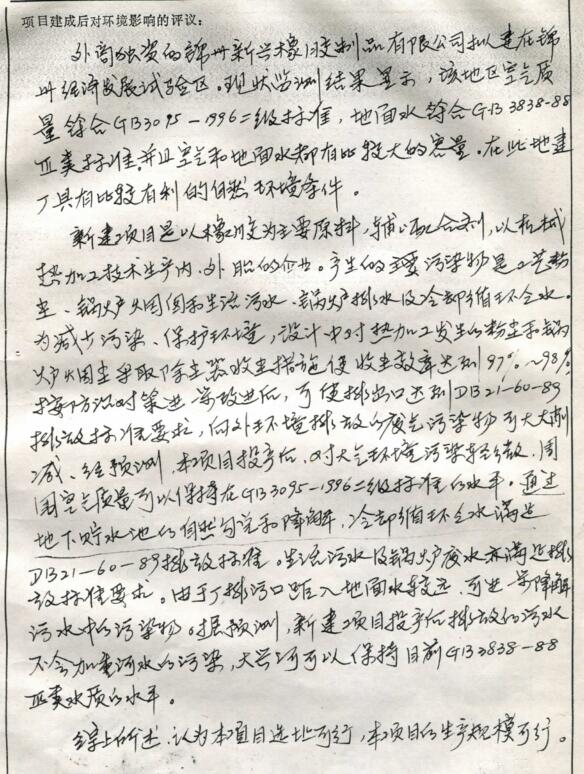 项目建成后对环境影响的评议：
外商独资的锦州新兴橡胶制品有限公司拟建在锦
州经济发展试验区。现状监测结果显示，该地区空气质
量符合GB3095-1996二级标准，地面水符合GB3838-88
Ⅲ类标准，并且空气和地面水都有比较大的容量。在此地建
厂具有比较有利的自然环境条件。
新建项目是以橡胶为主要原料，辅以配合剂，以机械
热加工技术生产内、外胎的企业。产生的主要污染物是工艺粉
尘、锅炉烟囱和生活污水、锅炉排水及冷却循环含水。
为减少污染、保护环境，设计中对热加工发生的粉尘和锅
炉烟尘采取除尘器收尘措施使收尘效率达到97%~98%
按防治对策进一步改进后，可使排出口达到DB21-60-89
排放标准要求，向外环境排放的废气污染物可大大削
减、经预测，本项目投产后，对大气环境污染轻微，周
围空气质量可以保持在GB3095-1996二级标准的水平。通过
地下贮水池的自然匀兑和降解，冷却循环含水满足
DB21-60-89排放标准。生活污水及锅炉废水亦满足排
放标准要求。由于厂排污口距入地面水较远，可进一步降解
污水中的污染物。据预测，新建项目投产后排放的污水
不会加重河水的污染，大兴河可以保持目前GB3838-88
Ⅲ类水质的水平。
综上所述，认为本项目选址可行，本项目的生产规模可行。